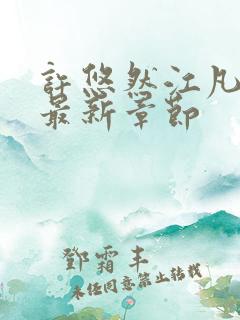 許悠然江凡
最新章節
鄧霜丰
未經同意禁止轉載